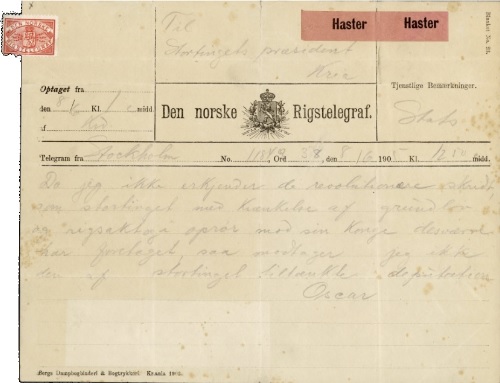 DEN NORSKE
Til
Stortingets præsident
Kria
Haster
Haster
Blanket No.
Optaget fra
den 8/6 Kl. 1 middag
af
Den norske Rigstelegraf.
Tjenstlige Bemærkninger.
Stats
Telegram fra Stockholm No. Ord 38, den 8/6 1905 Kl. 12 midd.
Da jeg ikke erkjender de revolutionære skridt
som stortinget med krænkelse af grundlov
og rigsakt og a oprør mod sin Konge desværre
har foretaget, saa modtager jeg ikke
den af stortinget tiltænkte deputation
Oscar
Bergs Dampbogbinderi & Bogtrykkeri Kr.ania